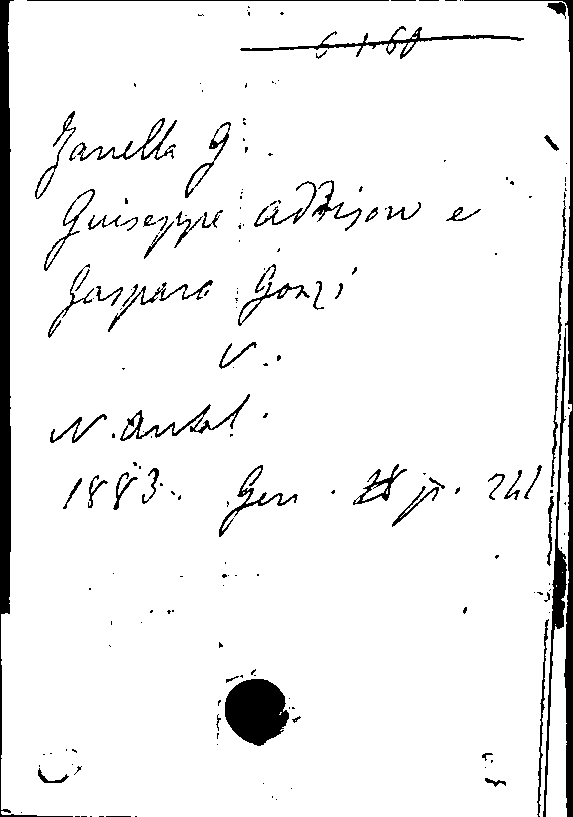 6.1.60
Zanella G.
Giuseppe Addison e
Gaspara Gonzi
V.
N. Antol.
1883. Gen. p. 241